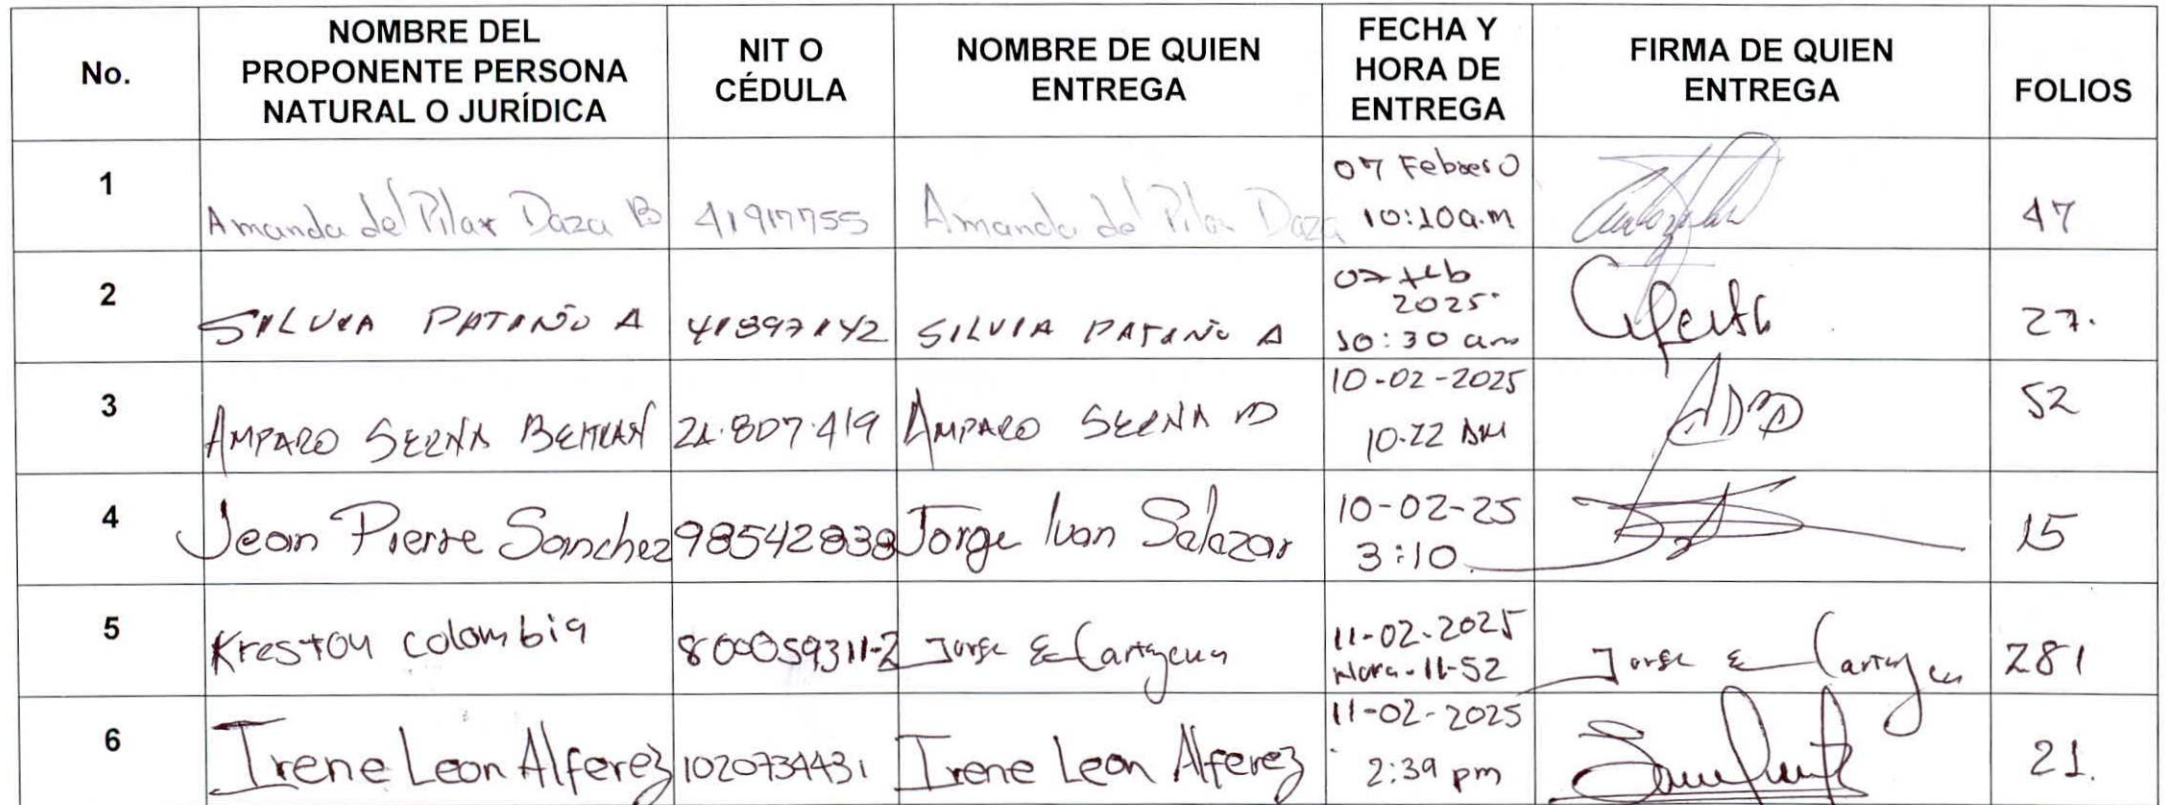 No.
NOMBRE DEL
PROPONENTE PERSONA
NATURAL O JURÍDICA
NIT O
CÉDULA
NOMBRE DE QUIEN
ENTREGA
FECHA Y
HORA DE
ENTREGA
FIRMA DE QUIEN
ENTREGA
FOLIOS
1
Amanda del Pilar Daza B
41917755
Amanda del Pilar Daza
07 Febrero
10:10a.m
47
2
SILVIA PATIÑO A
41897142
SILVIA PATIÑO A
07 feb
2025
10:30 am
27.
3
AMPARO SERNA BELTRAN
21.807.419
AMPARO SERNA B
10-02-2025
10-22 AM
52
4
Jean Pierre Sanchez
98542838
Jorge Ivan Salazar
10-02-25
3:10
15
5
Kreston colombia
800059311-2
Jorge E Cartagena
11-02-2025
Hora-11-52
Jorge E Cartagena
281
6
Irene Leon Alferez
1020734431
Irene Leon Alferez
11-02-2025
2:39 pm
21.